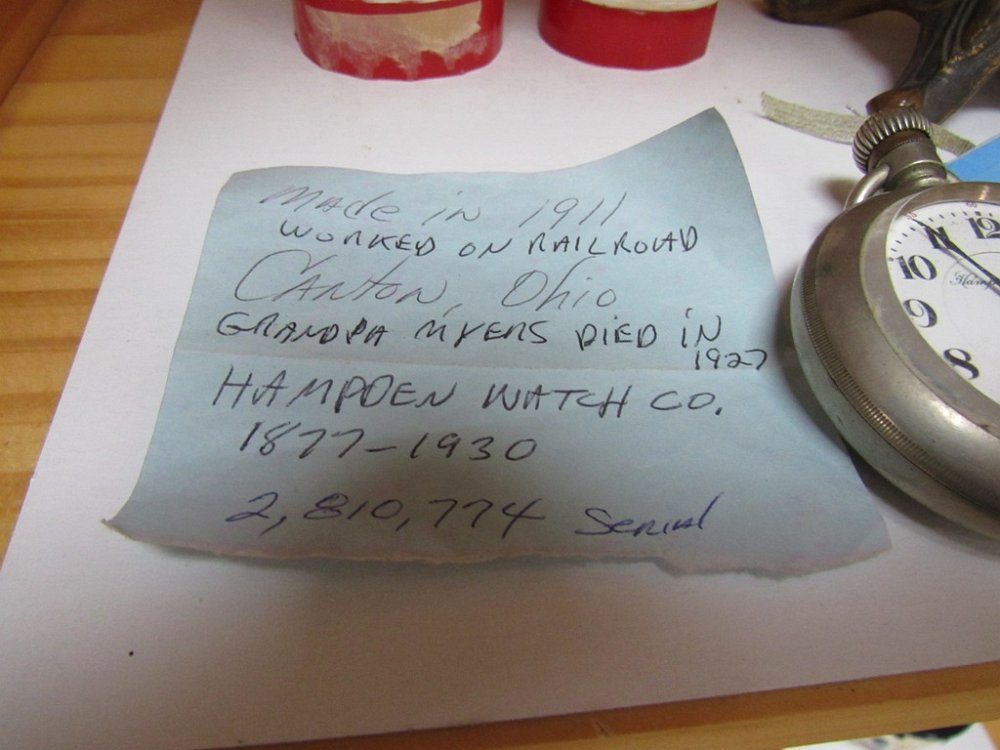 Made in 1911
WORKED ON RAILROAD
Canton, Ohio
GRANDPA MYERS DIED IN
1927
HAMPDEN WATCH CO.
1877-1930
2,810,774 Serial
12
11
10
9
8
Hamp